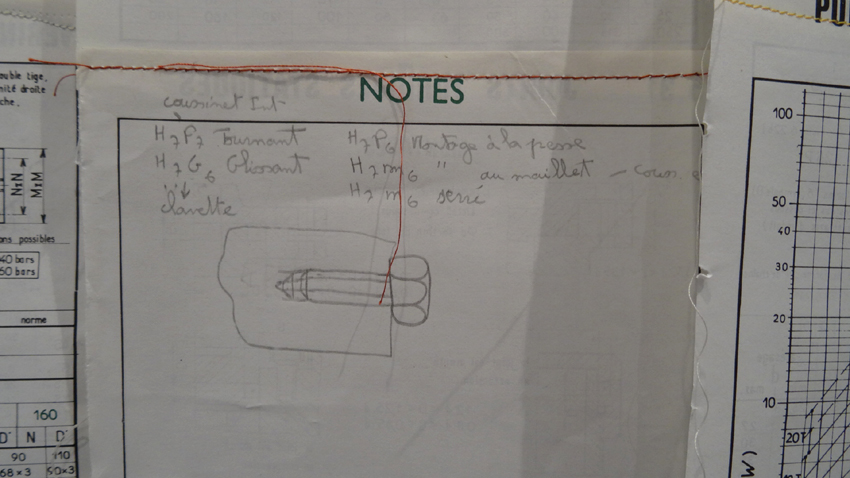 ouble tige,
nité droite
che.
N≥N
M≥M
ons possibles
40 bars
60 bars
norme
160
D N D
90 110
68×3 90×3
NOTES
coussinet Int
H7P7 Tournant
H7G6 Glissant
clavette
H7P6 Montage à la presse
H7m6 " au maillet - couss. e
H7m6 serré
100
50
40
30
20
10
20T
W)